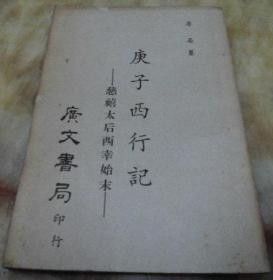 庚子西行記
——慈禧太后西幸始末——
廣文書局
印行